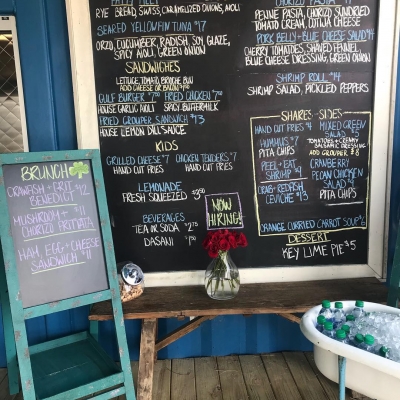 PATTY MELT
RYE BREAD, SWISS, CARAMELIZED ONIONS, AIOLI
SEARED YELLOWFIN TUNA $17
ORZO, CUCUMBER, RADISH, SOY GLAZE,
SPICY AIOLI, GREEN ONION
SANDWICHES
LETTUCE TOMATO BRIOCHE BUN
ADD CHEESE OR BACON
GULF BURGER
HOUSE GARLIC AIOLI
FRIED CHICKEN
SPICY BUTTERMILK
FRIED GROUPER SANDWICH $13
HOUSE LEMON DILL SAUCE
KIDS
GRILLED CHEESE $7
HAND CUT FRIES
CHICKEN TENDERS $7
HAND CUT FRIES
LEMONADE
FRESH SQUEEZED $3.50
BEVERAGES
TEA OR SODA $2.75
DASANI
NOW
HIRING!
CHORIZO PASTA
PENNE PASTA, CHORIZO, SUNDRIED
TOMATO CREAM, COTIJA CHEESE
PORK BELLY + BLUE CHEESE SALAD $14
CHERRY TOMATOES, SHAVED FENNEL,
BLUE CHEESE DRESSING, GREEN ONION
SHRIMP ROLL $14
SHRIMP SALAD, PICKLED PEPPERS
SHARES + SIDES
HAND CUT FRIES $4
HUMMUS $7
PITA CHIPS
PEEL + EAT
SHRIMP
CRAB + REDFISH
CEVICHE $13
MIXED GREEN
SALAD
BALSAMIC DRESSING
ADD GROUPER $8
CRANBERRY
PECAN CHICKEN
SALAD
PITA CHIPS
ORANGE CURRIED CARROT SOUP
DESSERT
KEY LIME PIE $5
BRUNCH
CRAWFISH + GRIT
BENEDICT $12
MUSHROOM + $11
CHORIZO FRITTATA
HAM, EGG + CHEESE
SANDWICH $11